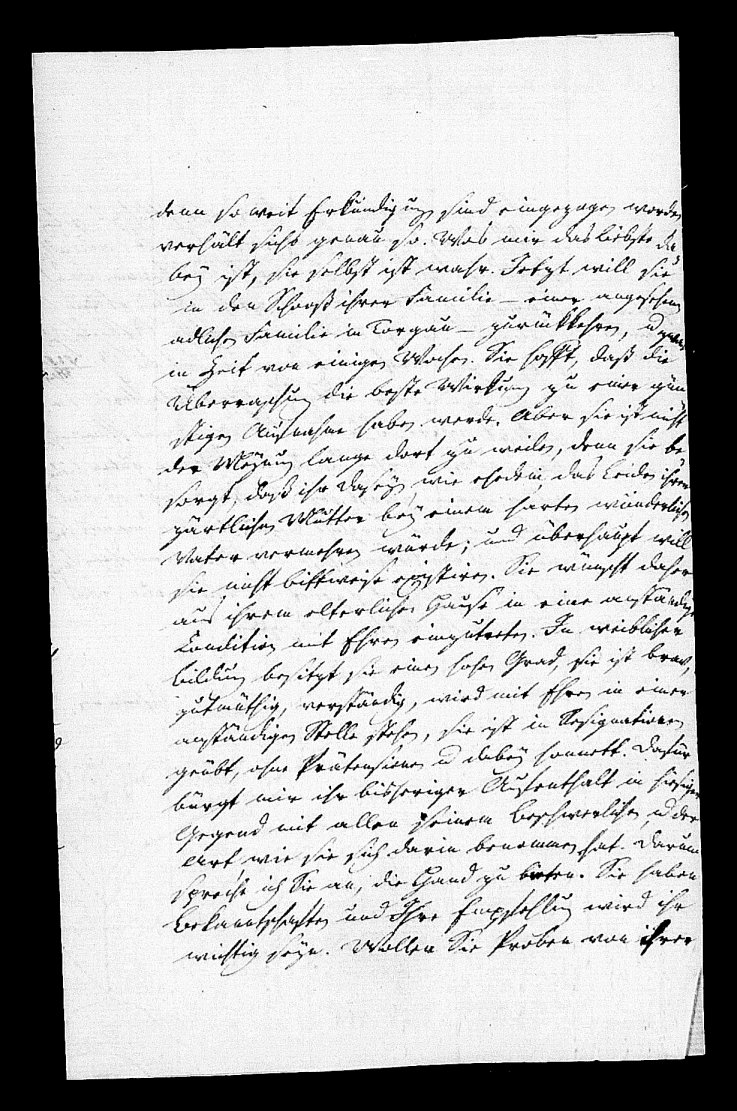 denn so weit Erkundigungen sind eingezogen worden
verhält sichs genau so. Was mir das liebste da
bey ist, sie selbst ist wahr. Jetzt will sie
in den Schooß ihrer Familie – einer angesehenen
adlichen Familie in Torgau – zurükkehren, u zwar
in Zeit von einigen Wochen. Sie hofft, daß die
Überraschung die beste Wirkung zu einer gün
stigen Aufnahme haben werde. Aber sie ist nicht
der Meynung lange dort zu weilen, denn sie be
sorgt, daß ihr Daseyn, wie ehedem, das Leiden ihrer
zärtlichen Mutter bey einem harten wunderlichen
Vater vermehren würde; und überhaupt will
sie nicht bittweise existiren. Sie wünscht daher
aus ihrem elterlichen Hause in eine anständige
Condition mit Ehren einzutreten. In weiblicher
bildung besitzt sie einen hohen Grad, sie ist brav,
gutmüthig, verständig, wird mit Ehren in einer
anständigen Stelle stehen, sie ist in Resignationen
geübt, ohne Prätensionen u dabey honnett. Dafür
bürgt mir ihr bisheriger Aufenthalt in hiesiger
Gegend mit allen seinem beschwerlichen, u der
Art wie sie sich darin benommen hat. Darum
spreche ich Sie an, die Hand zu bieten. Sie haben
bekanntschaften und Ihre Empfehlung wird ihr
wichtig seyn. Wollen Sie Proben von ihrer